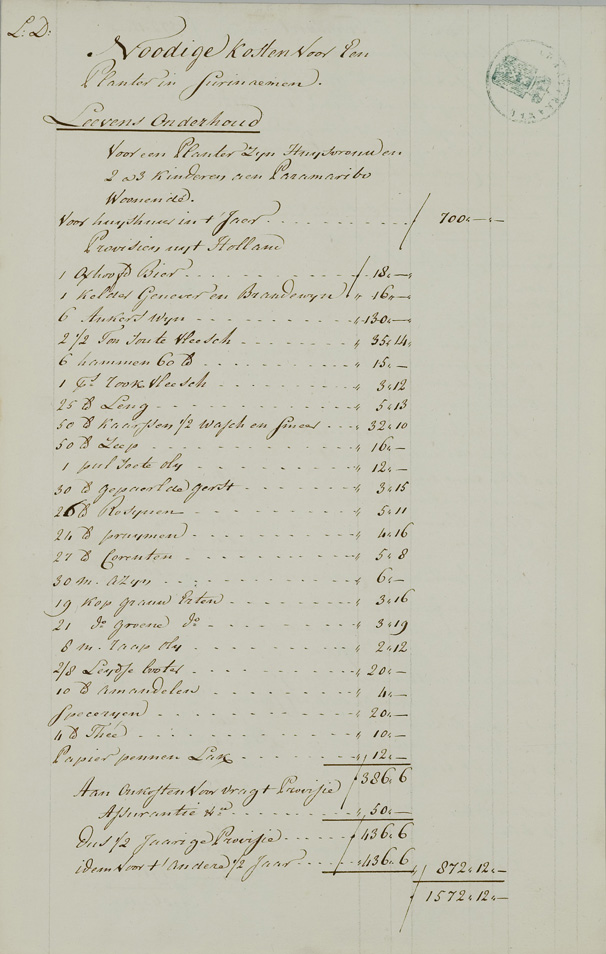 L: D:
Noodige Kosten voor Een
Planter in Surinaemen.
Leevens Onderhoud
Voor een Planter Zyn Huysvrouw en
2 a 3 Kinderen aen Paramaribo
Woonende.
Voor huyshuur in t' Jaar ƒ 700"—"—
Provisien uyt Holland
1 Oxhooft Bier ƒ " 18"—"
1 kelder Genever en Brandewyn " 16"—"
6 Ankers wyn " 130"—"
2 1/2 Ton Soute Vleesch " 35"14"
6 hammen 60 ℔ " 15"—
1 rook Vleesch " 3"12
25 ℔ Leng " 5"13
50 ℔ Kaarssen 1/2 wasch en Smeer " 32"10
50 ℔ Zeep " 16"—
1 pul Soete oly " 12"—
30 ℔ gepaerlde gerst " 3"15
26 ℔ Rosynen " 5"11
24 ℔ pruymen " 4"16
27 ℔ Corenten " 5"8
30 m. azyn " 6"—
19 kop graauw Erten " 3"16
21 do groene do " 3"19
8 m. raap oly " 2"12
2/8 Leydse boter " 20"—
10 ℔ amandelen " 4"—
Speceryen " 20"—
4 ℔ Thee " 10"—
Papier pennen Lak " 12"—
ƒ 386"6
Aan Onkosten voor vragt Provisie
Assurantie &a " 50"—
Dus 1/2 Jaarige Provisie ƒ 436"6
idem voor t' Andere 1/2 Jaar " 436"6 ƒ 872"12"—
ƒ 1572"12"—